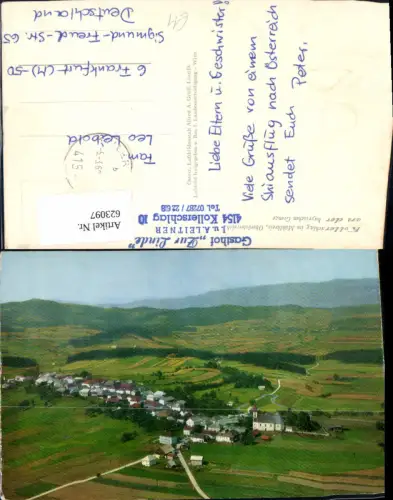 Liebe Eltern u. Geschwister!
Viele Grüße von einem
Skiausflug nach Österreich
sendet Euch Peter.
Fam
Leo Leibold
6 Frankfurt (M)-50
Sigmund-Freud-Str. 65
Deutschland
415
Artikel Nr.
623097
Gasthof „Zur Linde"
J. u. A. LEITNER
4154 Kollerschlag 10
Tel. 07287 / 22 6 B
Kollerschlag im Mühlkreis, Oberösterreich
an der bayrischen Grenze